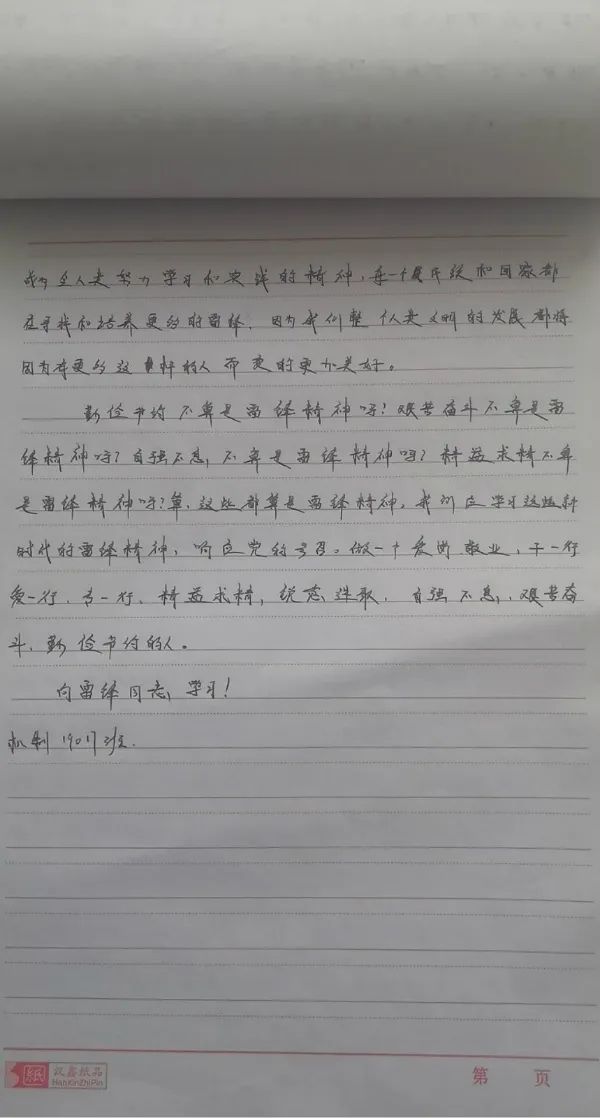 成为全人类努力学习和实践的精神,每一个民族和国家都
在寻找和培养更多的雷锋,因为我们整个人类文明的发展都将
因为有更多这样的人而变的更加美好。
勤俭节约不算是雷锋精神吗?艰苦奋斗不算是雷
锋精神吗?自强不息,不算是雷锋精神吗?精益求精不算
是雷锋精神吗?算,这些都算是雷锋精神,我们应学习这些新
时代的雷锋精神,响应党的号召。做一个爱岗敬业,干一行
爱一行、专一行、精益求精,锐意进取,自强不息、艰苦奋
斗、勤俭节约的人。
向雷锋同志学习!
机制1901班.
纸
汉鑫纸品
HanXinZhiPin
第 页